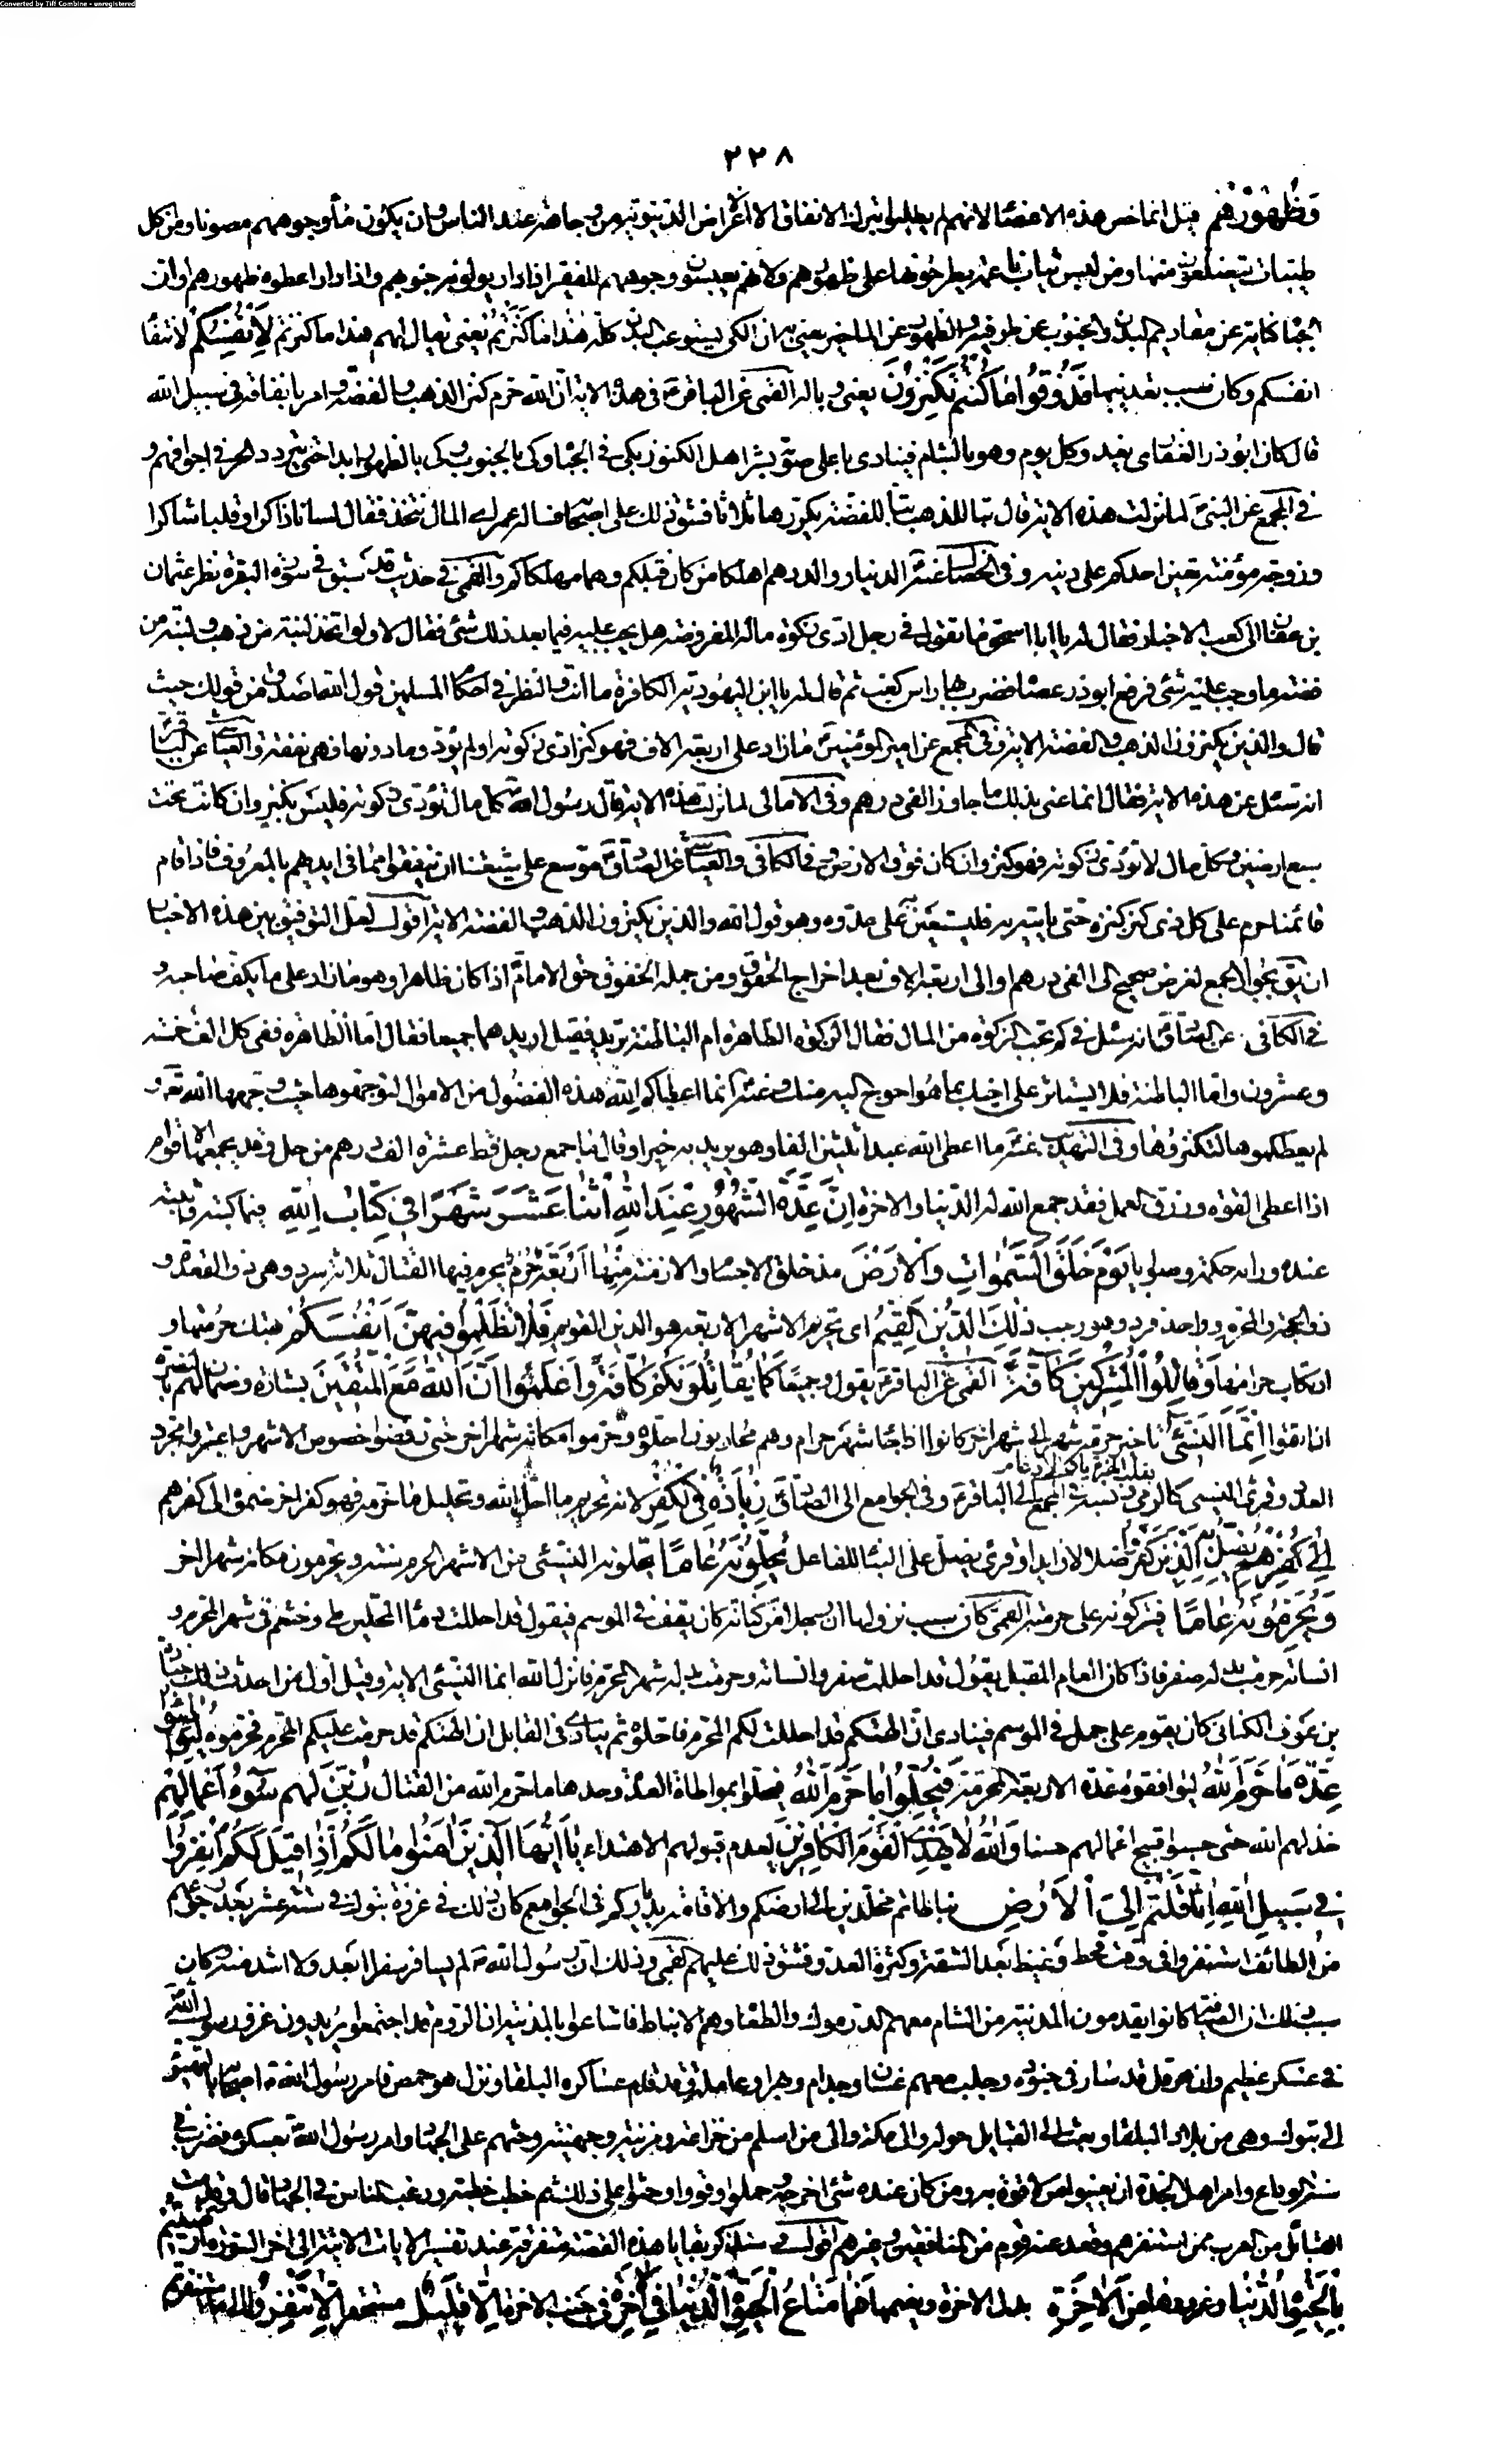 Converted by Tiff Combine - unregistered
٢٢٨
وَظُهُورُهُمْ قيل انما خص هذه الاعضاء لانهم لم يطلبوا بترك الانفاق الا الاغراض الدنيوية من وجاهة عند الناس وان يكون ماء وجوههم مصونا ومن اكل
طيبات يتضلعون منها ومن لبس ثياب ناعمة يطرحونها على ظهورهم ولانهم يعبسون وجوههم للفقير اذا راوه يولونه جنوبهم واذا دار اعطوه ظهورهم او ان
الجباه كناية عن مقاديم البدن والجنوب عن طرفيه والظهور عن المآخير يعني به ان الكي يستوعب البدن كله هٰذَا مَا كَنَزْتُمْ يعني يقال لهم هذا ما كنزتم لِأَنْفُسِكُمْ لانتفاع
انفسكم وكان سبب تعذيبها فَذُوقُوا مَا كُنْتُمْ تَكْنِزُونَ يعني وباله القمي عن الباقر ع في هذه الاية ان الله حرم كنز الذهب والفضة وامر بانفاقه في سبيل الله
قال كان ابوذر الغفاري يغدو كل يوم وهو بالشام فينادي باعلى صوته بشر اهل الكنوز بكي في الجباه وكي بالجنوب وكي بالظهور ابدا حتى يتردد الحر في اجوافهم و
في المجمع عن النبي ص لما نزلت هذه الاية قال تبا للذهب تبا للفضة يكررها ثلاثا فشق ذلك على اصحابه فساله عمر اي المال نتخذ فقال لسانا ذاكرا وقلبا شاكرا
وزوجة مؤمنة تعين احدكم على دينه وفي الخصال عنه ص الدينار والدرهم اهلكا من كان قبلكم وهما مهلكاكم والقمي في حديث قد سبق في سورة البقرة نظر عثمان
بن عفان الى كعب الاحبار فقال له يا ابا اسحق ما تقول في رجل ادى زكوة ماله المفروضة هل يجب عليه فيما بعد ذلك شئ فقال لا ولو اتخذ لبنة من ذهب ولبنة من
فضة ما وجب عليه شئ فرفع ابوذر عصاه فضرب بها راس كعب ثم قال له يا ابن اليهودية الكافرة ما انت والنظر في احكام المسلمين قول الله اصدق من قولك حيث
قال والذين يكنزون الذهب والفضة الاية وفي المجمع عن امير المؤمنين ع ما زاد على اربعة الاف فهو كنز ادى زكوته او لم يؤد وما دونها فهي نفقة والعياشي عن الباقر ع
انه سئل عن هذه الاية فقال انما عنى بذلك ما جاوز الفي درهم وفي الامالي لما نزلت هذه الاية قال رسول الله ص كل مال تؤدى زكوته فليس بكنز وان كانت تحت
سبع ارضين وكل مال لا تؤدى زكوته فهو كنز وان كان فوق الارض وفي الكافي والعياشي عن الصادق ع موسع على شيعتنا ان ينفقوا مما في ايديهم بالمعروف فاذا قام
قائمنا حرم على كل ذي كنز كنزه حتى ياتيه به فليستعين على عدوه وهو قول الله والذين يكنزون الذهب والفضة الاية اقول لعل التوفيق بين هذه الاخبار
ان يق بجواز الجمع لغرض صحيح الى الفي درهم او الى اربعة الاف بعد اخراج الحقوق ومن جملة الحقوق حق الامام ع اذا كان ظاهرا وهو ما زاد على ما يكف صاحبه و
في الكافي عن الصادق ع انه سئل في كم تجب الزكوة من المال فقال الزكوة الظاهرة ام الباطنة تريد فقيل اريدهما جميعا فقال اما الظاهرة ففي كل الف خمسة
وعشرون واما الباطنة فلا يستاثر على اخيك بما هو احوج اليه منك وعنه ع انما اعطاكم الله هذه الفضول من الاموال لتوجهوها حيث وجهها الله تعالى و
لم يعطكموها لتكنزوها وفي التهذيب عنه ع ما اعطى الله عبدا ثلثين الفا وهو يريد به خيرا وقال ما جمع رجل قط عشرة الف درهم من حل وقد يجمعها لاقوام
اذا اعطى القوة ورزق العمل فقد جمع الله له الدنيا والاخرة اِنَّ عِدَّةَ الشُّهُورِ عِنْدَ اللّٰهِ اثْنَا عَشَرَ شَهْرًا فِي كِتَابِ اللّٰهِ فيما كتبه واثبته
عنده وراه حكمة وصوابا يَوْمَ خَلَقَ السَّمٰوَاتِ وَالْاَرْضَ مذ خلق الاجسام والازمنة مِنْهَا اَرْبَعَةٌ حُرُمٌ يحرم فيها القتال ثلاثة سرد وهي ذو القعدة و
ذو الحجة والمحرم وواحد فرد وهو رجب ذٰلِكَ الدِّينُ الْقَيِّمُ اي تحريم الاشهر الاربعة هو الدين القويم فَلَا تَظْلِمُوا فِيهِنَّ اَنْفُسَكُمْ بهتك حرمتها و
ارتكاب حرامها وَقَاتِلُوا الْمُشْرِكِينَ كَافَّةً القمي عن الباقر ع يقول جميعا كَمَا يُقَاتِلُونَكُمْ كَافَّةً وَاعْلَمُوا اَنَّ اللّٰهَ مَعَ الْمُتَّقِينَ بشارة وضمان لهم بالنصرة
ان اتقوا اِنَّمَا النَّسِيءُ تاخير حرمة شهر الى شهر اخر كانوا اذا جاء شهر حرام وهم محاربون احلوه وحرموا مكانه شهرا اخر حتى رفضوا خصوص الاشهر واعتبروا مجرد
العدد وقرئ النسي كالرمي ونسبت في المجمع الى الباقر ع وفي الجوامع الى الصادق ع زِيَادَةٌ فِي الْكُفْرِ لانه تحريم ما احل الله وتحليل ما حرمه فهو كفر اخر ضموه الى كفرهم
بقلب الهمزة ياء والادغام
يُضَلُّ بِهِ الَّذِينَ كَفَرُوا ضلالا زايدا وقرئ يضل على البناء للفاعل يُحِلُّونَهُ عَامًا يحلون النسئ من الاشهر الحرم سنة ويحرمون مكانه شهرا اخر
وَيُحَرِّمُونَهُ عَامًا فيتركونه على حرمته القمي كان سبب نزولها ان رجلا من كنانة كان يقف في الموسم فيقول قد احللت دماء المحلين طي وخثعم في شهر المحرم و
انسأته وحرمت بدله صفر فاذا كان العام المقبل يقول قد احللت صفر وانسأته وحرمت بدله شهر المحرم فانزل الله انما النسئ الاية وقيل اول من احدث ذلك جنادة
بن عوف الكناني كان يقوم على جمل في الموسم فينادي ان الهتكم قد احللت لكم المحرم فاحلوه ثم ينادي في القابل ان الهتكم قد حرمت عليكم المحرم فحرموه لِيُوَاطِئُوا
عِدَّةَ مَا حَرَّمَ اللّٰهُ ليوافقوا عدة الاربعة المحرمة فَيُحِلُّوا مَا حَرَّمَ اللّٰهُ فيحلوا بمواطاة العدة وحدها ما حرم الله من القتال زُيِّنَ لَهُمْ سُوءُ اَعْمَالِهِمْ
خذلهم الله حتى حسبوا قبيح اعمالهم حسنا وَاللّٰهُ لَا يَهْدِي الْقَوْمَ الْكَافِرِينَ لعدم قبولهم الاهتداء يَا اَيُّهَا الَّذِينَ اٰمَنُوا مَا لَكُمْ اِذَا قِيلَ لَكُمُ انْفِرُوا
فِي سَبِيلِ اللّٰهِ اثَّاقَلْتُمْ اِلَى الْاَرْضِ تباطاتم مخلدين الى ارضكم والاقامة بدياركم في الجوامع كان ذلك في غزوة تبوك في سنة عشر بعد رجوعهم
من الطائف استنفروا في وقت قحط وقيظ بعد الشقة وكثرة العدو فشق ذلك عليهم القمي وذلك ان رسول الله ص لم يسافر سفرا ابعد ولا اشد منه كان
سبب ذلك ان الصيافة كانوا يقدمون المدينة من الشام معهم الدرموك والطعام وهم الانباط فاشاعوا بالمدينة ان الروم قد اجتمعوا يريدون غزو رسول الله ص
في عسكر عظيم وان هرقل قد سار في جنوده وجلب معهم غسان وجذام وبهراء وعاملة وقد قدم عساكره البلقاء ونزل هو حمص فامر رسول الله ص اصحابه بالتهيؤ
الى تبوك وهي من بلاد البلقاء وبعث الى القبايل حوله والى مكة والى من اسلم من خزاعة ومزينة وجهينة وحثهم على الجهاد وامر رسول الله ص بعسكره فضرب في
ثنية الوداع وامر اهل الجدة ان يعينوا من لا قوة به ومن كان عنده شئ اخرجه وحملوا وقووا وحثوا على ذلك ثم خطب خطبة ورغب الناس في الجهاد قال وقدمت
القبائل من العرب ممن استنفرهم وقعد عنه قوم من المنافقين وغيرهم اقول سنذكر بقايا هذه القصة متفرقة عند تفسير الايات الاتية الى اخر السورة اَرَضِيتُمْ
بِالْحَيٰوةِ الدُّنْيَا وغرورها مِنَ الْاٰخِرَةِ بدل الاخرة ونعيمها فَمَا مَتَاعُ الْحَيٰوةِ الدُّنْيَا فِي الْاٰخِرَةِ في جنب الاخرة اِلَّا قَلِيلٌ مستحقر اِلَّا تَنْفِرُوا